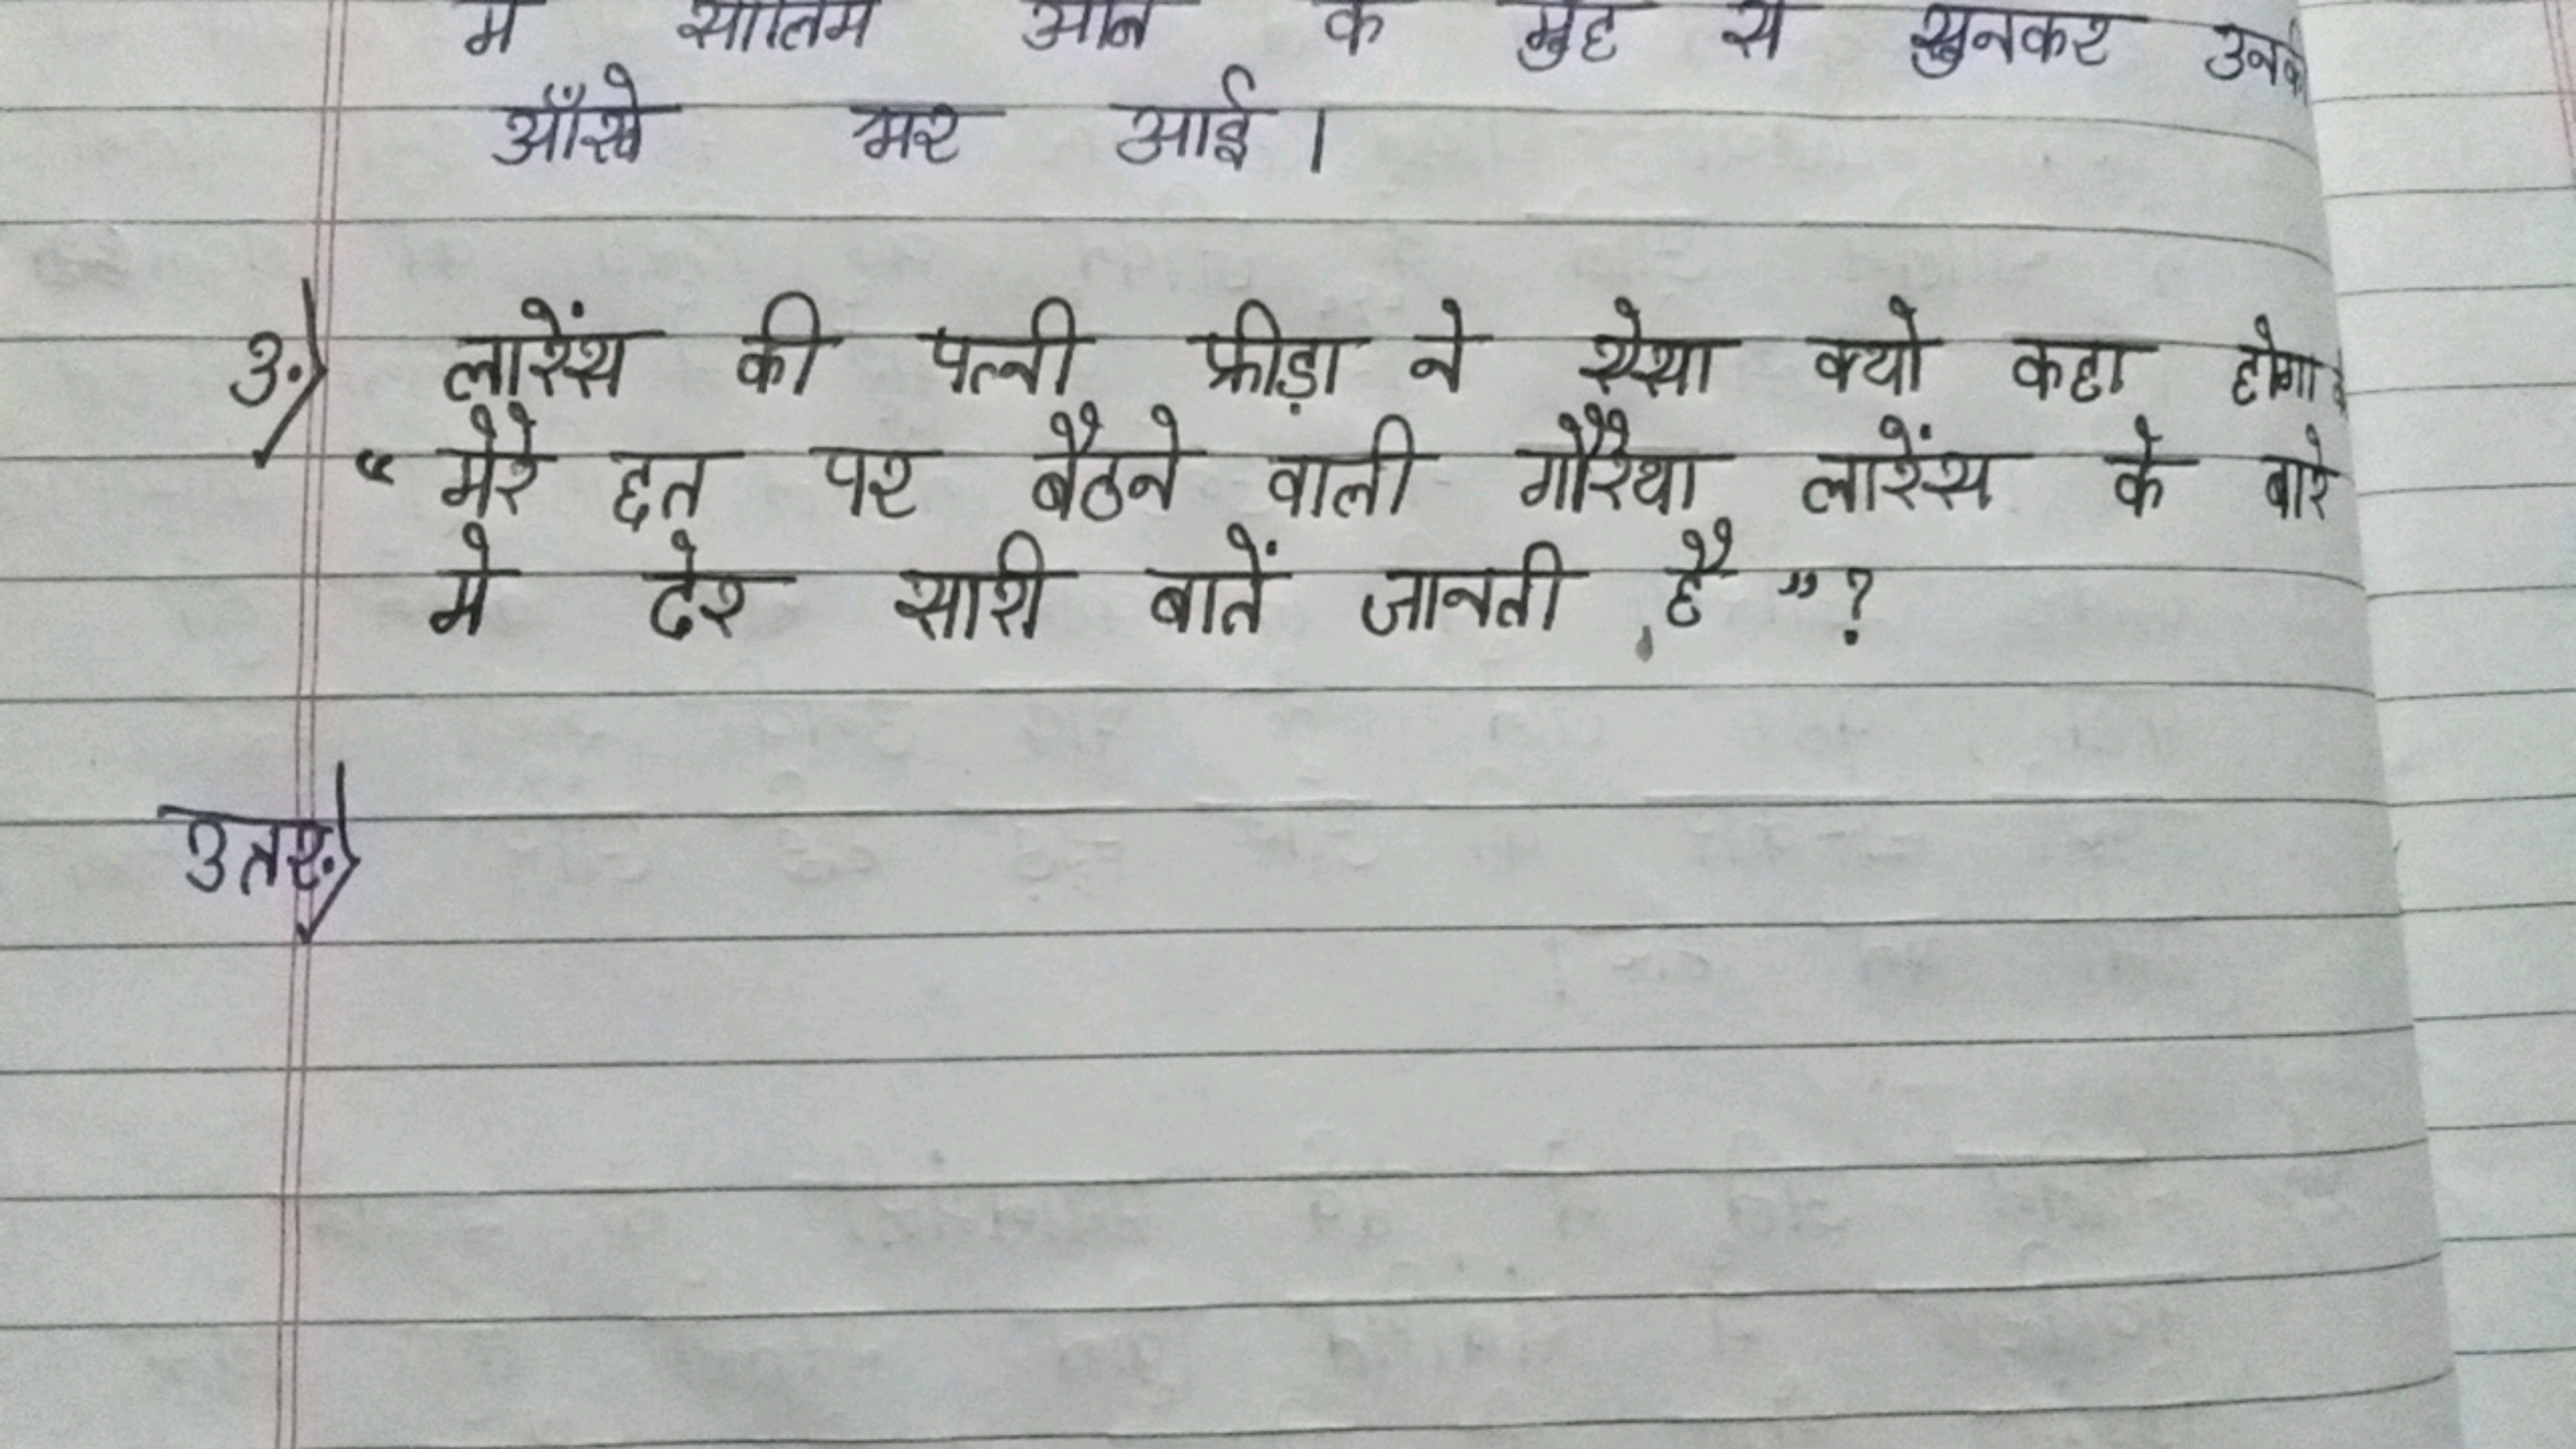 में सालिम अली के मुँह से सुनकर उनकी
आँखे भर आई।
3.) लारेंस की पत्नी फ्रीड़ा ने ऐसा क्यो कहा होगा
“मेरे छत पर बैठने वाली गौरैया लारेंस के बारे
मे ढेर सारी बातें जानती है”?
उतर.)